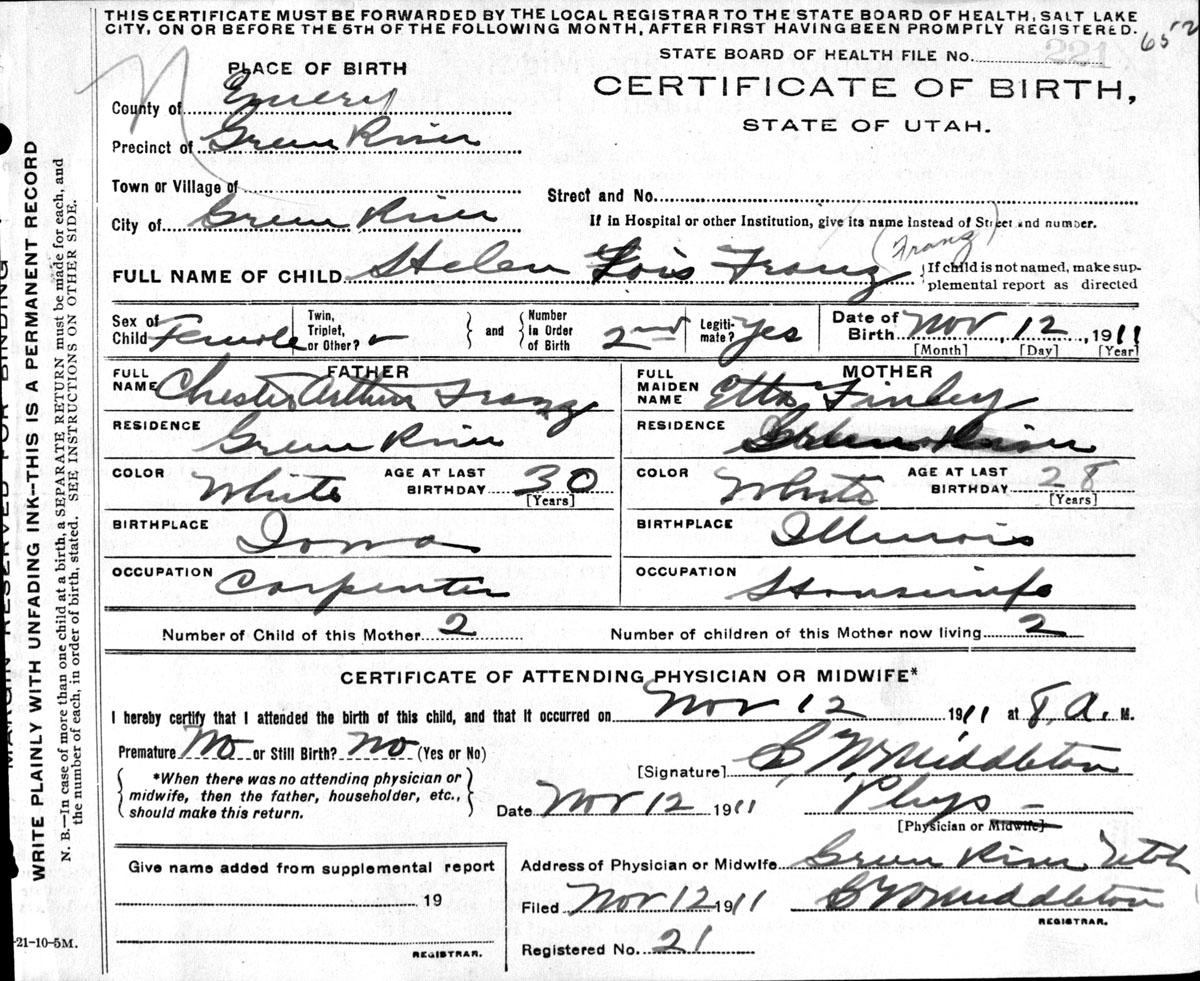 THIS CERTIFICATE MUST BE FORWARDED BY THE LOCAL REGISTRAR TO THE STATE BOARD OF HEALTH, SALT LAKE
CITY, ON OR BEFORE THE 5TH OF THE FOLLOWING MONTH, AFTER FIRST HAVING BEEN PROMPTLY REGISTERED.
652
STATE BOARD OF HEALTH FILE No. 221
PLACE OF BIRTH
CERTIFICATE OF BIRTH,
STATE OF UTAH.
County of Emery
Precinct of Green River
Town or Village of
Street and No.
City of Green River
If in Hospital or other Institution, give its name instead of Street and number.
(Franz)
FULL NAME OF CHILD Helen Lois Franz
{If child is not named, make sup-
plemental report as directed
Sex of Child Female
Twin, Triplet, or Other?
and
Number in Order of Birth 2nd
Legiti-mate? Yes
Date of Birth Nov 12, 1911
[Month] [Day] [Year]
FATHER
FULL NAME Chester Arthur Franz
RESIDENCE Green River
COLOR White
AGE AT LAST BIRTHDAY 30
[Years]
BIRTHPLACE Iowa
OCCUPATION Carpenter
MOTHER
FULL MAIDEN NAME Etta Finley
RESIDENCE Green River
COLOR White
AGE AT LAST BIRTHDAY 28
[Years]
BIRTHPLACE Illinois
OCCUPATION Housewife
Number of Child of this Mother 2
Number of children of this Mother now living 2
CERTIFICATE OF ATTENDING PHYSICIAN OR MIDWIFE*
I hereby certify that I attended the birth of this child, and that it occurred on Nov 12 1911 at 8, a. M.
Premature No or Still Birth? No (Yes or No)
*When there was no attending physician or
midwife, then the father, householder, etc.,
should make this return.
[Signature] C W Middleton
Date Nov 12 1911 Phys -
[Physician or Midwife]
Give name added from supplemental report
19
REGISTRAR.
Address of Physician or Midwife Green River Utah
Filed Nov 12 1911 C W Middleton
REGISTRAR.
Registered No. 21
-21-10-5M.
MARGIN RESERVED FOR BINDING
WRITE PLAINLY WITH UNFADING INK—THIS IS A PERMANENT RECORD
N. B.—In case of more than one child at a birth, a SEPARATE RETURN must be made for each, and
the number of each, in order of birth, stated. SEE INSTRUCTIONS ON OTHER SIDE.